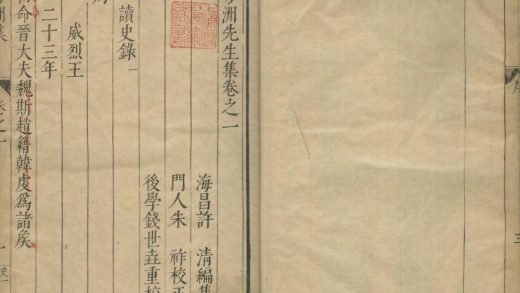 洲先生集卷之一
海昌許　清編集
門人朱　祚校正
後學錢世垚重校
讀史錄一
威烈王
二十三年
初命晉大夫魏斯趙籍韓虔爲諸矦
洲集
卷之一
一